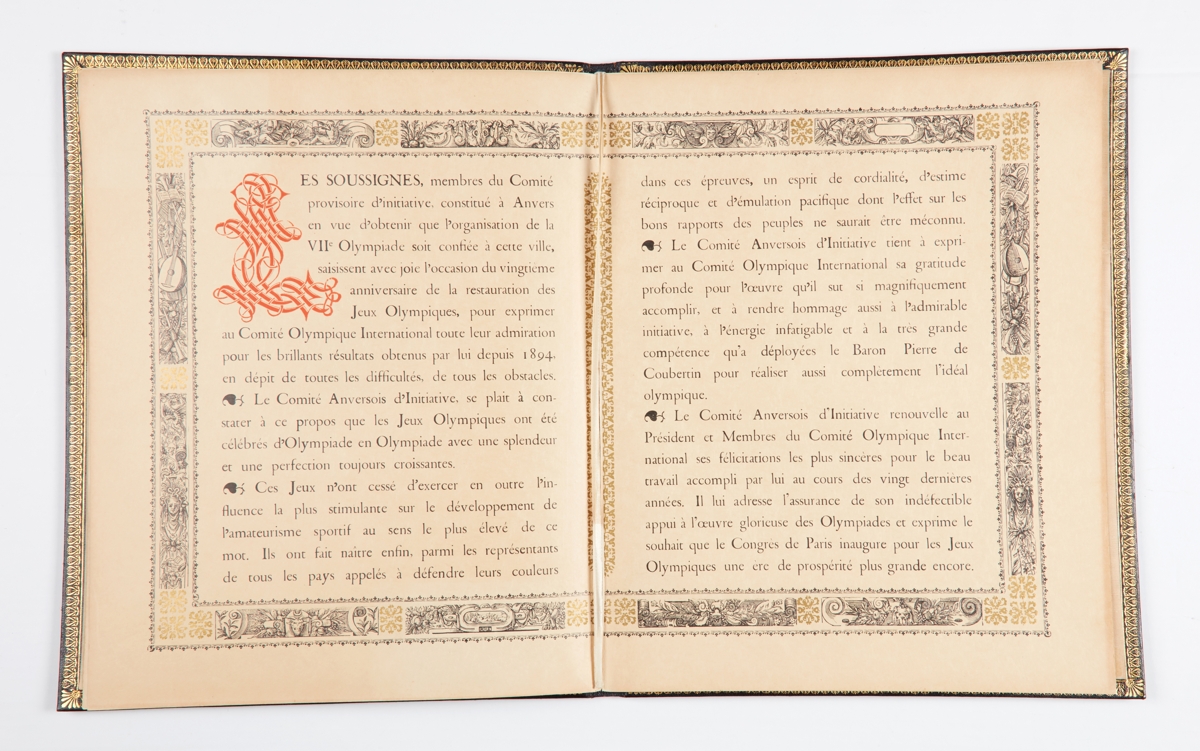 LES SOUSSIGNES, membres du Comité
provisoire d'initiative, constitué à Anvers
en vue d'obtenir que l'organisation de la
VIIe Olympiade soit confiée à cette ville,
saisissent avec joie l'occasion du vingtième
anniversaire de la restauration des
Jeux Olympiques, pour exprimer
au Comité Olympique International toute leur admiration
pour les brillants résultats obtenus par lui depuis 1894,
en dépit de toutes les difficultés, de tous les obstacles.
Le Comité Anversois d'Initiative, se plait à con-
stater à ce propos que les Jeux Olympiques ont été
célébrés d'Olympiade en Olympiade avec une splendeur
et une perfection toujours croissantes.
Ces Jeux n'ont cessé d'exercer en outre l'in-
fluence la plus stimulante sur le développement de
l'amateurisme sportif au sens le plus élevé de ce
mot. Ils ont fait naître enfin, parmi les représentants
de tous les pays appelés à défendre leurs couleurs
dans ces épreuves, un esprit de cordialité, d'estime
réciproque et d'émulation pacifique dont l'effet sur les
bons rapports des peuples ne saurait être méconnu.
Le Comité Anversois d'Initiative tient à expri-
mer au Comité Olympique International sa gratitude
profonde pour l'œuvre qu'il sut si magnifiquement
accomplir, et à rendre hommage aussi à l'admirable
initiative, à l'énergie infatigable et à la très grande
compétence qu'a déployées le Baron Pierre de
Coubertin pour réaliser aussi complètement l'idéal
olympique.
Le Comité Anversois d'Initiative renouvelle au
Président et Membres du Comité Olympique Inter-
national ses félicitations les plus sincères pour le beau
travail accompli par lui au cours des vingt dernières
années. Il lui adresse l'assurance de son indéfectible
appui à l'œuvre glorieuse des Olympiades et exprime le
souhait que le Congrès de Paris inaugure pour les Jeux
Olympiques une ère de prospérité plus grande encore.